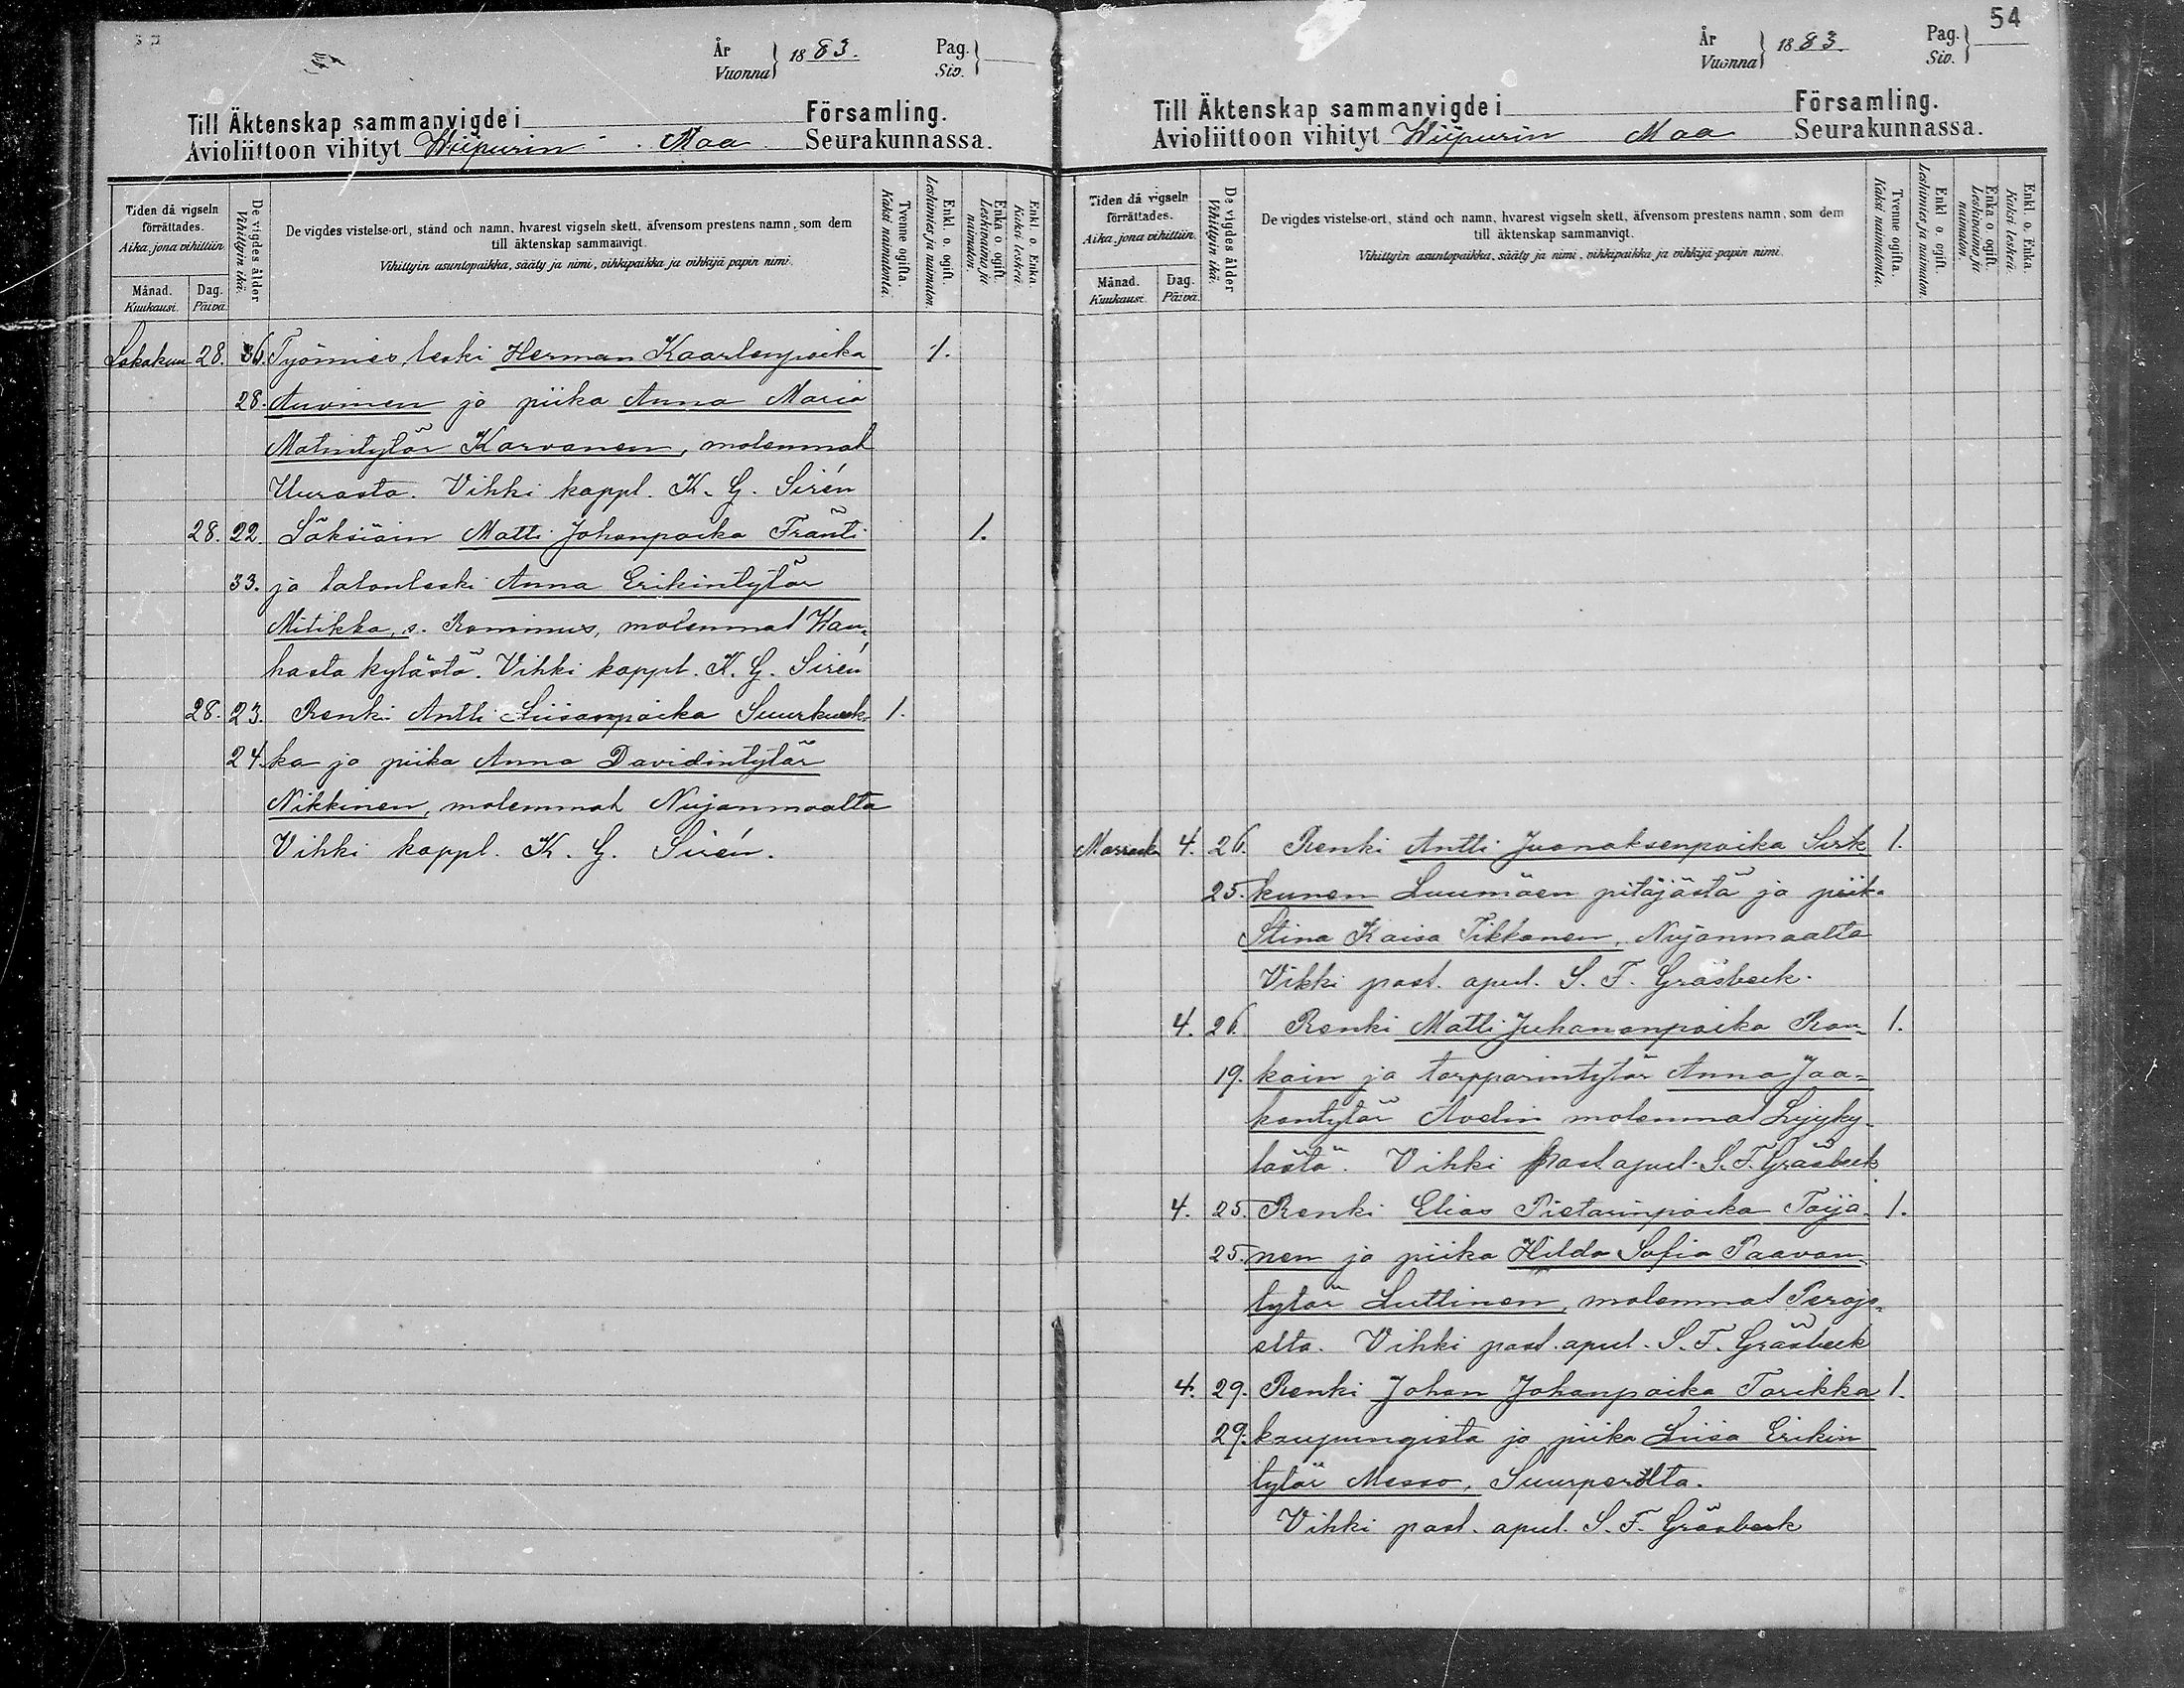 År
Vuonna } 1883. Pag.
Siv. }
Till Äktenskap sammanvigde i Församling.
Avioliittoon vihityt Wiipurin Maa Seurakunnassa.
Tiden då vigseln förrättades.
Aika, jona vihittiin.
Månad.
Kuukausi.
Dag.
Päivä.
De vigdes ålder
Vihittyin ikä.
De vigdes vistelse-ort, stånd och namn, hvarest vigseln skett, äfvensom prestens namn, som dem
till äktenskap sammanvigt.
Vihittyin asuntopaikka, sääty ja nimi, vihkipaikka ja vihkijä papin nimi.
Tvenne ogifta.
Kaksi naimatonta.
Enkl. o. ogift.
Leskimies ja naimaton.
Enka o. ogift.
Leskivaimo ja naimaton.
Enkl. o. Enka.
Kaksi leskeä.
Lokakuu 28. 36. Työmies, leski Herman Kaarlenpoika 1.
28. Auvinen ja piika Anna Maria
Matintytär Karvanen, molemmat
Uurasta. Vihki kappl. K. G. Sirén
28. 22. Matti Johanpoika Fränti 1.
33. ja talonleski Anna Erikintytär
Mitikka, s. Rominus, molemmat Kau-
hasta kylästä. Vihki kappl. K. G. Sirén
28. 23. Renki Antti Liisanpoika Suurkuuk- 1.
24. ka ja piika Anna Davidintytär
Nikkinen, molemmat Nuijanmaalta
Vihki kappl. K. G. Sirén.
54
År
Vuonna } 1883. Pag.
Siv. }
Till Äktenskap sammanvigde i Församling.
Avioliittoon vihityt Wiipurin Maa Seurakunnassa.
Tiden då vigseln förrättades.
Aika, jona vihittiin.
Månad.
Kuukausi.
Dag.
Päivä.
De vigdes ålder
Vihittyin ikä.
De vigdes vistelse-ort, stånd och namn, hvarest vigseln skett, äfvensom prestens namn, som dem
till äktenskap sammanvigt.
Vihittyin asuntopaikka, sääty ja nimi, vihkipaikka ja vihkijä papin nimi.
Tvenne ogifta.
Kaksi naimatonta.
Enkl. o. ogift.
Leskimies ja naimaton.
Enka o. ogift.
Leskivaimo ja naimaton.
Enkl. o. Enka.
Kaksi leskeä.
Marrask 4. 26. Renki Antti Juonaksenpoika Sirk- 1.
25. kunen Luumäen pitäjästä ja piik.
Stina Kaisa Tikkanen, Nuijanmaalta
Vihki past. apul. S. F. Gräsbeck.
4. 26. Renki Matti Juhananpoika Rou- 1.
19. koin ja torpparintytär Anna Jaa-
kontytär Avelin molemmat Lyyky-
lästä. Vihki past. apul. S. F. Gräsbeck
4. 25. Renki Elias Pietarinpoika Toija- 1.
25. nen ja piika Hilda Sofia Paavon-
tytär Luttinen, molemmat Perojo-
elta. Vihki past. apul. S. F. Gräsbeck
4. 29. Renki Johan Johanpoika Tarikka 1.
29. kaupungista ja piika Liisa Erikin
tytär Messo, Suurperältä.
Vihki past. apul. S. F. Gräsbeck